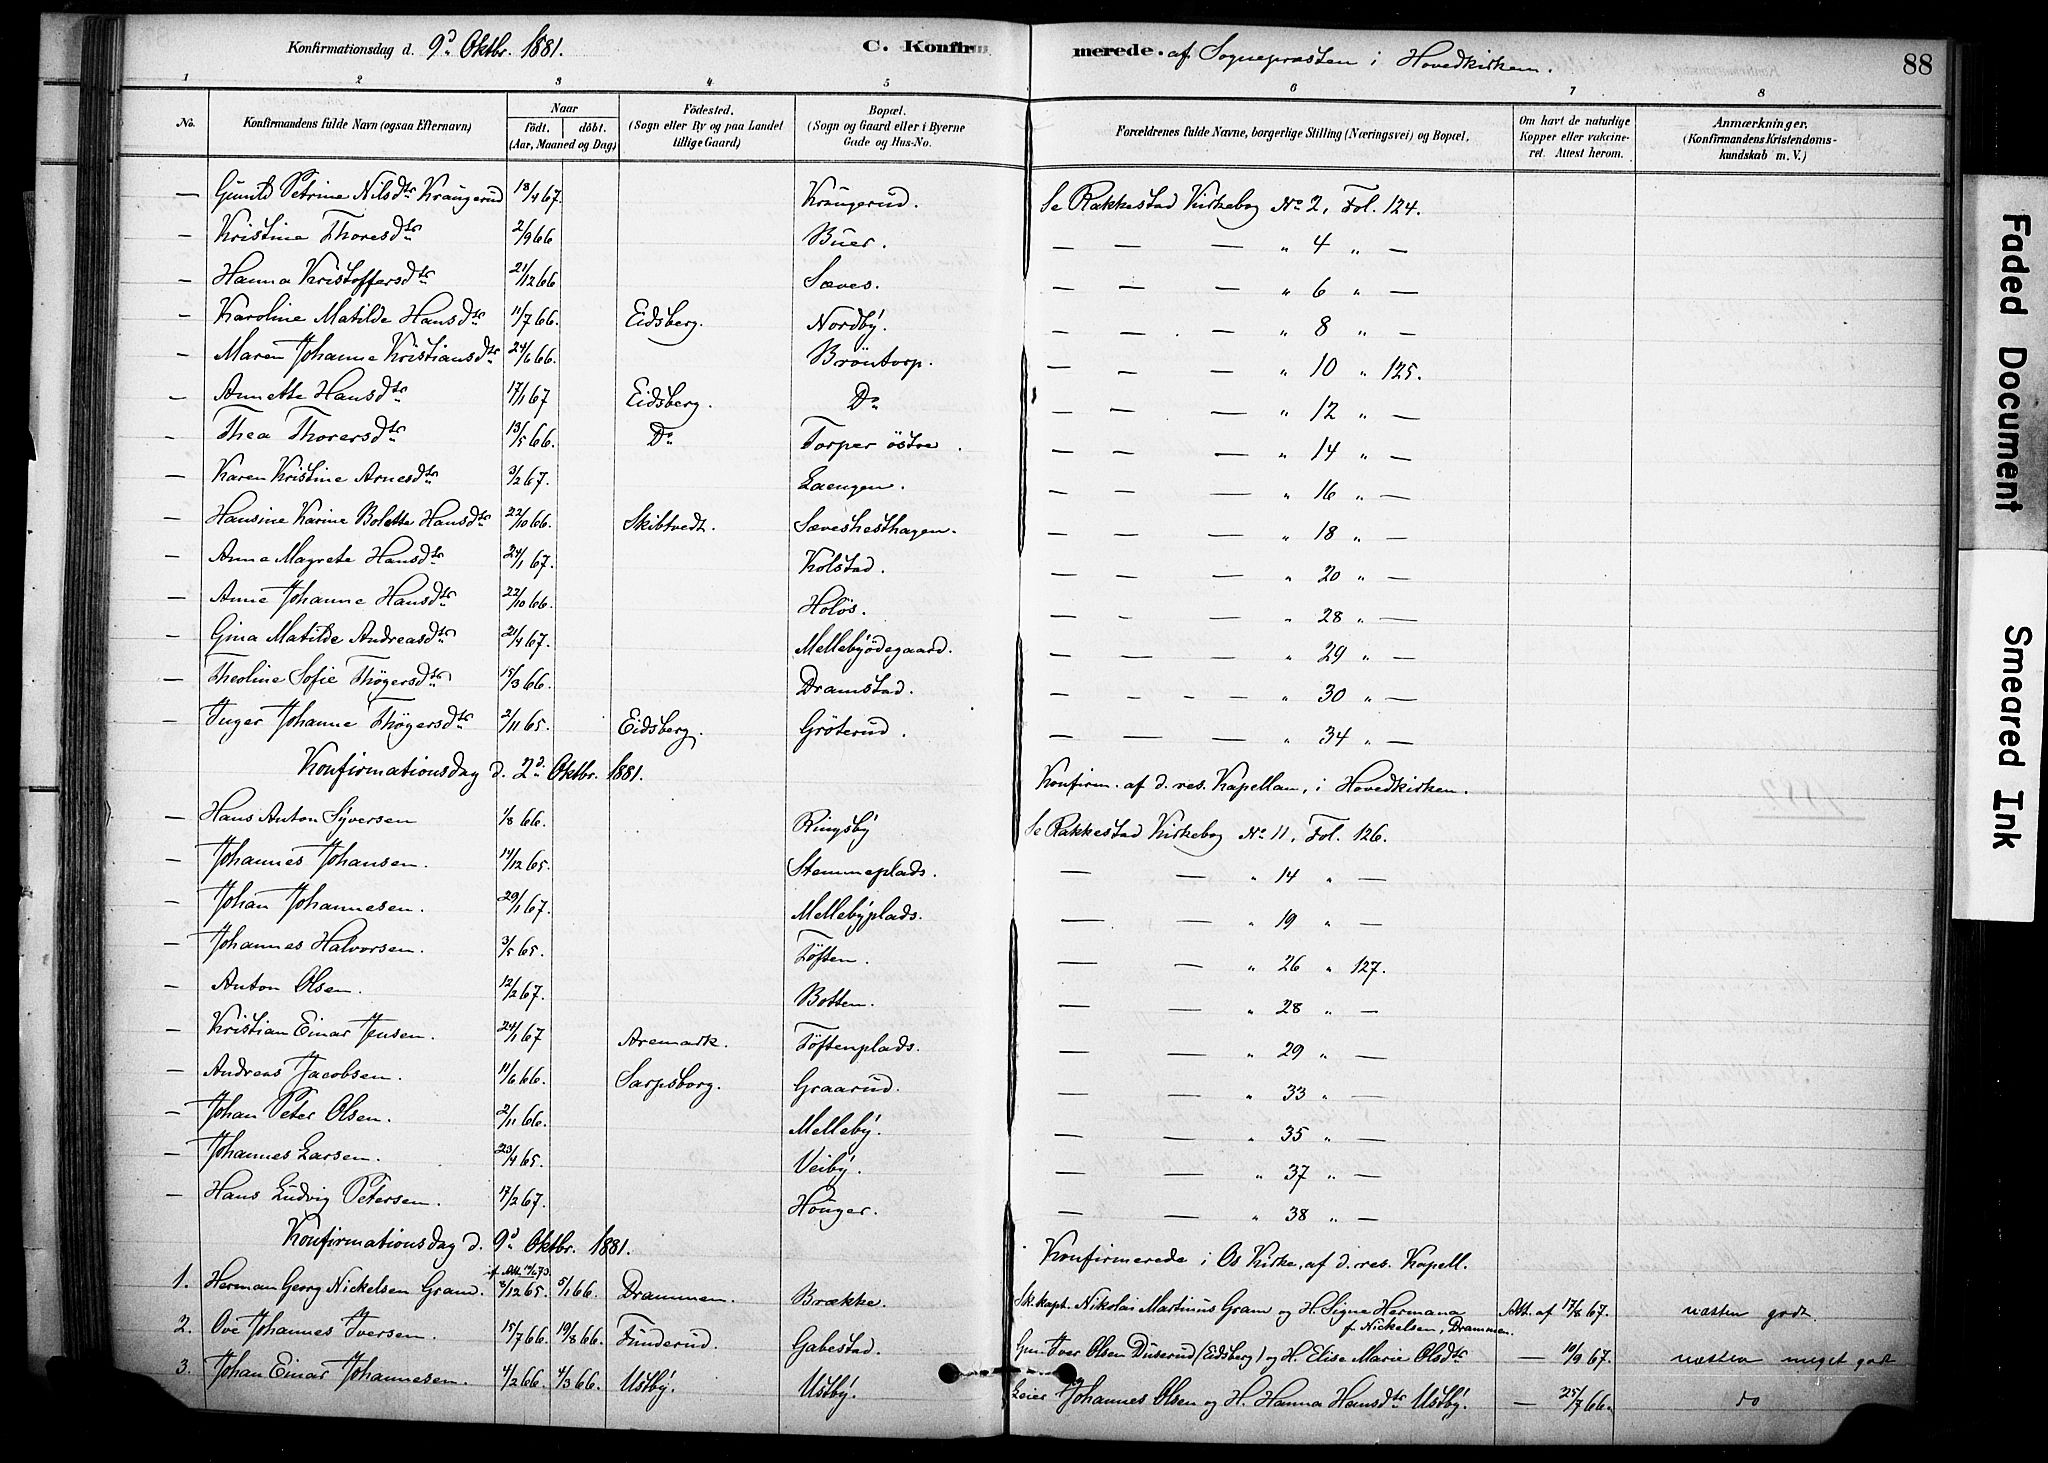 Konfirmationsdag d. 9d Oktbr. 1881. C. Konfirmerede. af Sognepræsten i Hovedkirken. 88
1 2 3 4 5 6 7 8
No. Konfirmandens fulde Navn (ogsaa Efternavn) Naar født. døbt. (Aar, Maaned og Dag) Födested. (Sogn eller By og paa Landet tillige Gaard) Bopæl. (Sogn og Gaard eller i Byerne Gade og Hus-No. Forældrenes fulde Navne, borgerlige Stilling (Næringsvei) og Bopæl. Om havt de naturlige Kopper eller vakcineret. Attest herom. Anmærkninger. (Konfirmandens Kristendomskundskab m. V.)
— Petrine Nilsdtr Krangerud 18/4 67. Krangerud. Se Rakkestad Kirkebog No 2, Fol. 124.
— Kristine Thoresdtr 2/9 66 Buer. — — — " 4 " —
— Hanna Kristoffersdtr 21/12 66 Sæves. — — — " 6 " —
— Karoline Matilde Hansdtr 11/7 66. Eidsberg. Nordby. — — — " 8 " —
— Maren Johanne Kristiansdtr 24/6 66. Bröntorp. — — — " 10 " 125.
— Annette Hansdtr 17/1 67 Eidsberg. Do — — — " 12 " —
— Thea Thorersdtr 13/5 66. Do Torper östre. — — — " 14 " —
— Karen Kristine Arnesdtr 3/2 67. Laengen. — — — " 16 " —
— Hansine Karine Bolette Hansdtr 22/10 66. Skibtvedt. Sæveshesthagen. — — — " 18 " —
— Anna Magrete Hansdtr 24/1 67. Kolstad. — — — " 20 " —
— Anne Johanne Hansdtr 22/10 66. Holös. — — — " 28 " —
— Gina Matilde Andreasdtr 21/4 67. Mellebyödegaard. — — — " 29 " —
— Theoline Sofie Thøgersdtr 15/3 66. Dramstad. — — — " 30 " —
— Inger Johanne Thøgersdtr 2/11 65. Eidsberg. Gröterud. — — — " 34 " —
Konfirmationsdag d. 2d. Oktbr. 1881. Konfirm. af d. res. Kapellan, i Hovedkirken.
— Hans Anton Syversen 1/8 66. Ringsby Se Rakkestad Kirkebog No 11, Fol. 126.
— Johannes Johansen. 14/12 65. Stemmeplads. — — " 14 " —
— Johan Johannesen. 29/1 67. Mellebyplads. — — " 19 " —
— Johannes Halvorsen. 3/5 65. Töften. — — " 26 " 127.
— Anton Olsen. 12/2 67. Botten. — — " 28 " —
— Kristian Einar Jensen. 24/1 67 Aremark. Töftenplads. — — " 29 " —
— Andreas Jacobsen. 11/6 66. Sarpsborg. Graarud. — — " 33 " —
— Johan Peter Olsen. 2/11 66. Melleby. — — " 35 " —
— Johannes Larsen. 23/4 65. Veiby. — — " 37 " —
— Hans Ludvig Petersen. 17/2 67. Höuger. — — " 38 " —
Konfirmationsdag d. 9d Oktbr. 1881. Konfirmerede i Os Kirke, af d. res. Kapell.
1. Herman Georg Nickelsen Gram. 8/12 65. 5/1 66. Drammen. Brække. Sk.kapt. Nikolai Martinus Gram og H. Signe Hermana f. Nickelsen, Drammen. Att. af 17/8 67. næsten godt.
2. Ove Johannes Iversen. 15/7 66. 19/8 66. Funderud. Gabestad. Iver Olsen Duserud (Eidsberg) og H. Elise Marie Olsdtr — 10/9 67. næsten meget godt
3. Johan Einar Johannesen. 4/2 66. 4/3 66. Ustby. Ustby. Leier Johannes Olsen og H. Hanna Hansdtr Ustby. — 25/7 66. do
Faded Document
Smeared Ink